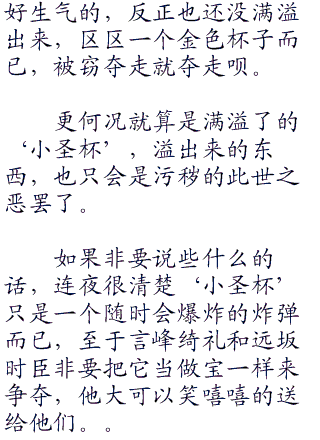 好生气的，反正也还没满溢
出来，区区一个金色杯子而
已，被窃夺走就夺走呗。
更何况就算是满溢了的
‘小圣杯’，溢出来的东
西，也只会是污秽的此世之
恶罢了。
如果非要说些什么的
话，连夜很清楚‘小圣杯’
只是一个随时会爆炸的炸弹
而已，至于言峰绮礼和远坂
时臣非要把它当做宝一样来
争夺，他大可以笑嘻嘻的送
给他们。。